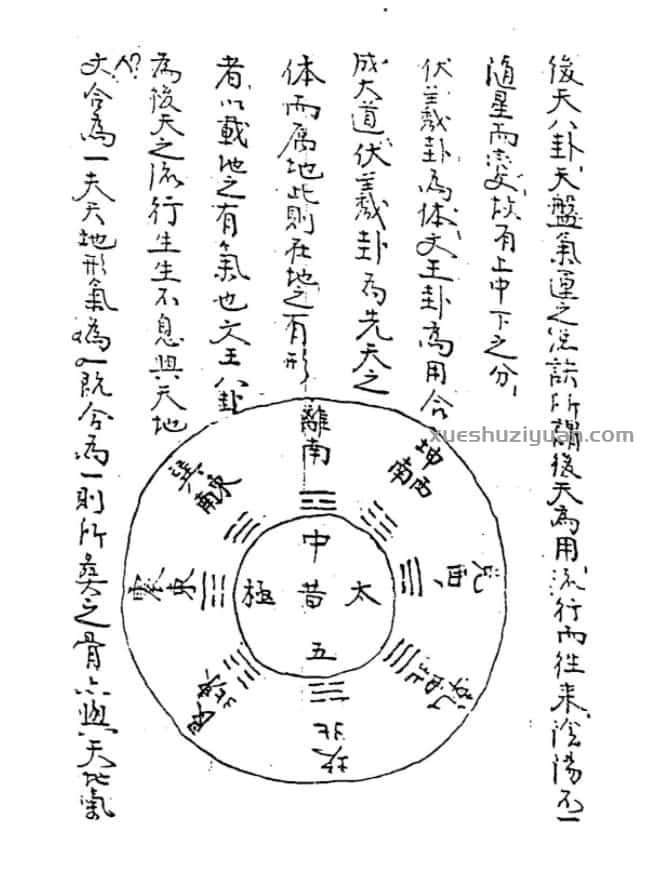 後天八卦天盤氣運之訣所謂後天為用流行而往来陰陽不一
隨星而变故有上中下之分
伏羲卦為体文王卦為用合
成大道伏羲卦為先天之
体而屬地此則在地之有形
者以載地之有氣也文王八卦
為後天之流行生生不息與天地
文合為一夫天地形氣既合為一則所葬之骨亦與天地氣
離南
坤西南
兌西
乾西北
坎北
艮東北
震東
巽東南
中
太黄極
五
xueshuziyuan.com